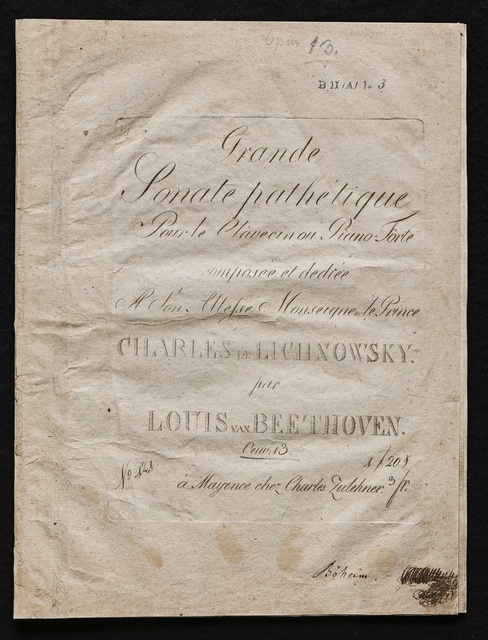 Opus 13.
BH/A/1. 3
Grande
Sonate pathétique
Pour le Clavecin ou Piano-Forte
composée et dediée
A Son Altesse Monseignr. le Prince
CHARLES DE LICHNOWSKY.
par
LOUIS VAN BEETHOVEN.
Oeuv. 13.
No 121
à Mayence chez Charles Zulehner.
Böheim.